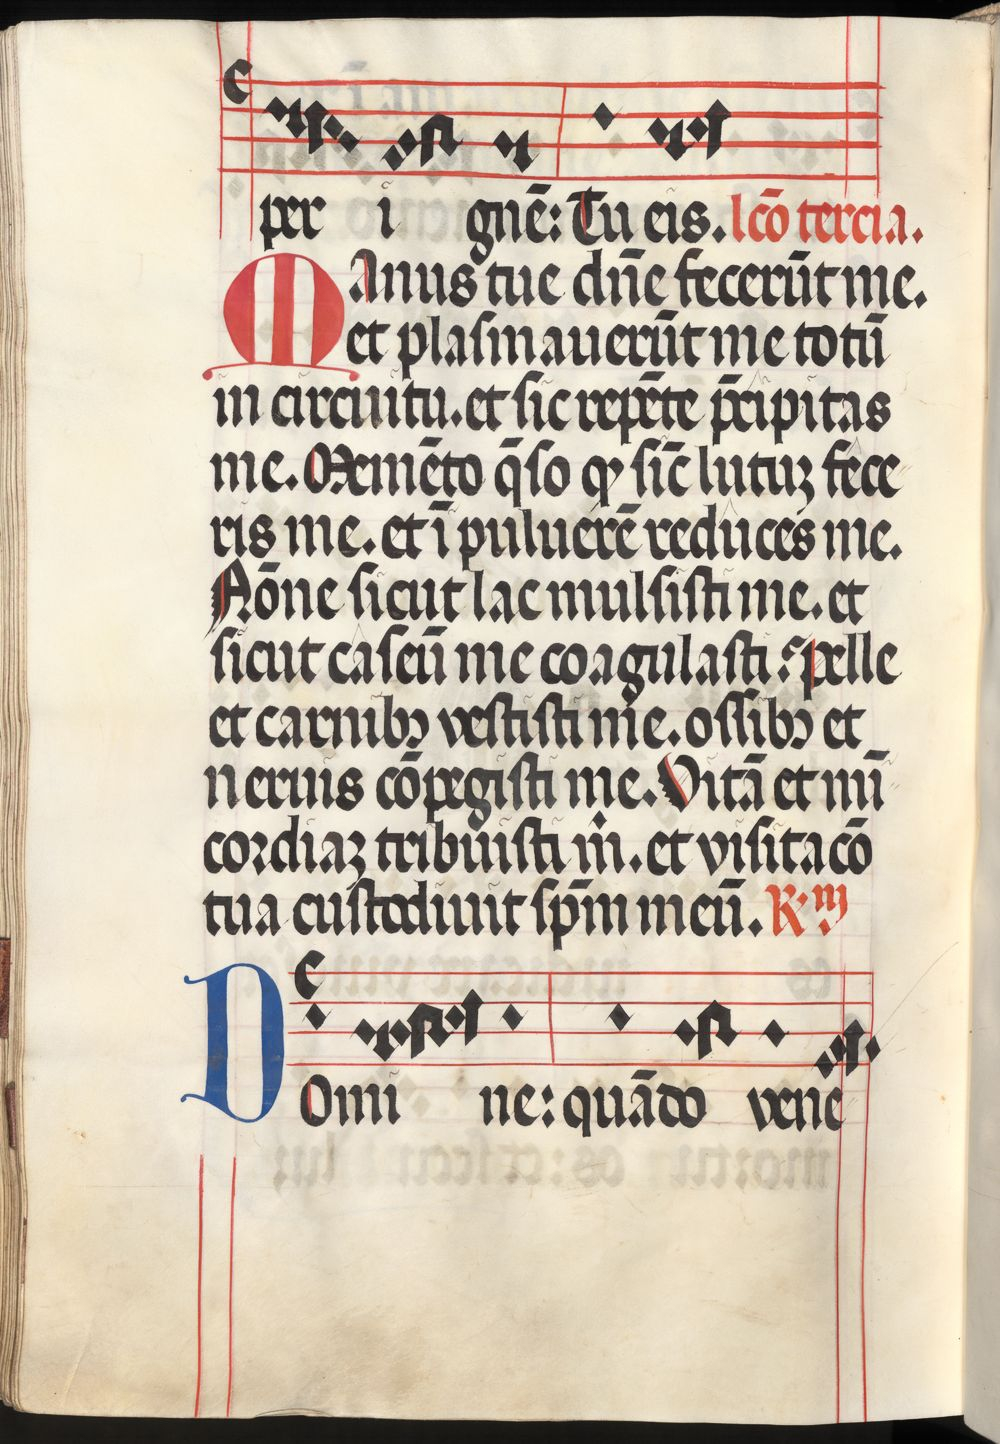 per i gnē: Tu eis. lcō tercia.
Manus tue dn̄e fecerūt me.
et plasmauerūt me totū
in circuitu. et sic repēte p̄cipitas
me. Memēto q̄so qꝫ sic̄ lutuꝫ fece
ris me. et ī puluerē reduces me.
Nōne sicut lac mulsisti me. et
sicut caseū me coagulasti? pelle
et carnibꝫ vestisti me. ossibꝫ et
neruis cōpegisti me. Vitā et mi̅
cordiaꝫ tribuisti m̄. et visitacō
tua custodiuit sp̄m meū. R. m
Domi ne: quādo vene